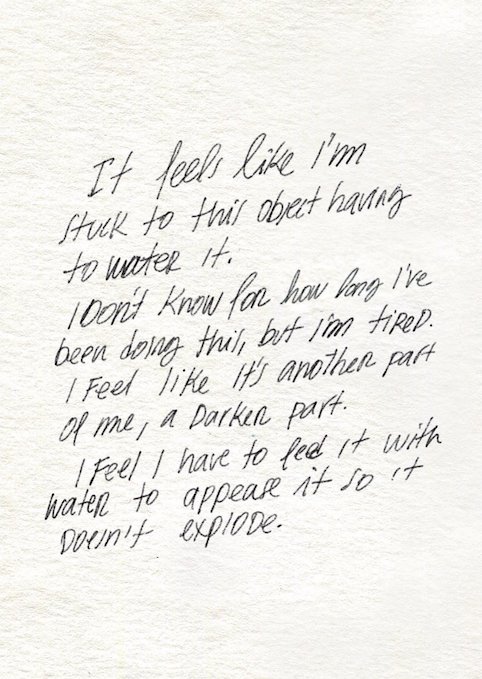 It feels like I'm
stuck to this object having
to water it.
I Don't know for how long I've
been doing this, but i'm tired.
I Feel like it's another part
of me, a Darker part.
I Feel I have to feed it with
water to appease it so it
Doesn't explode.